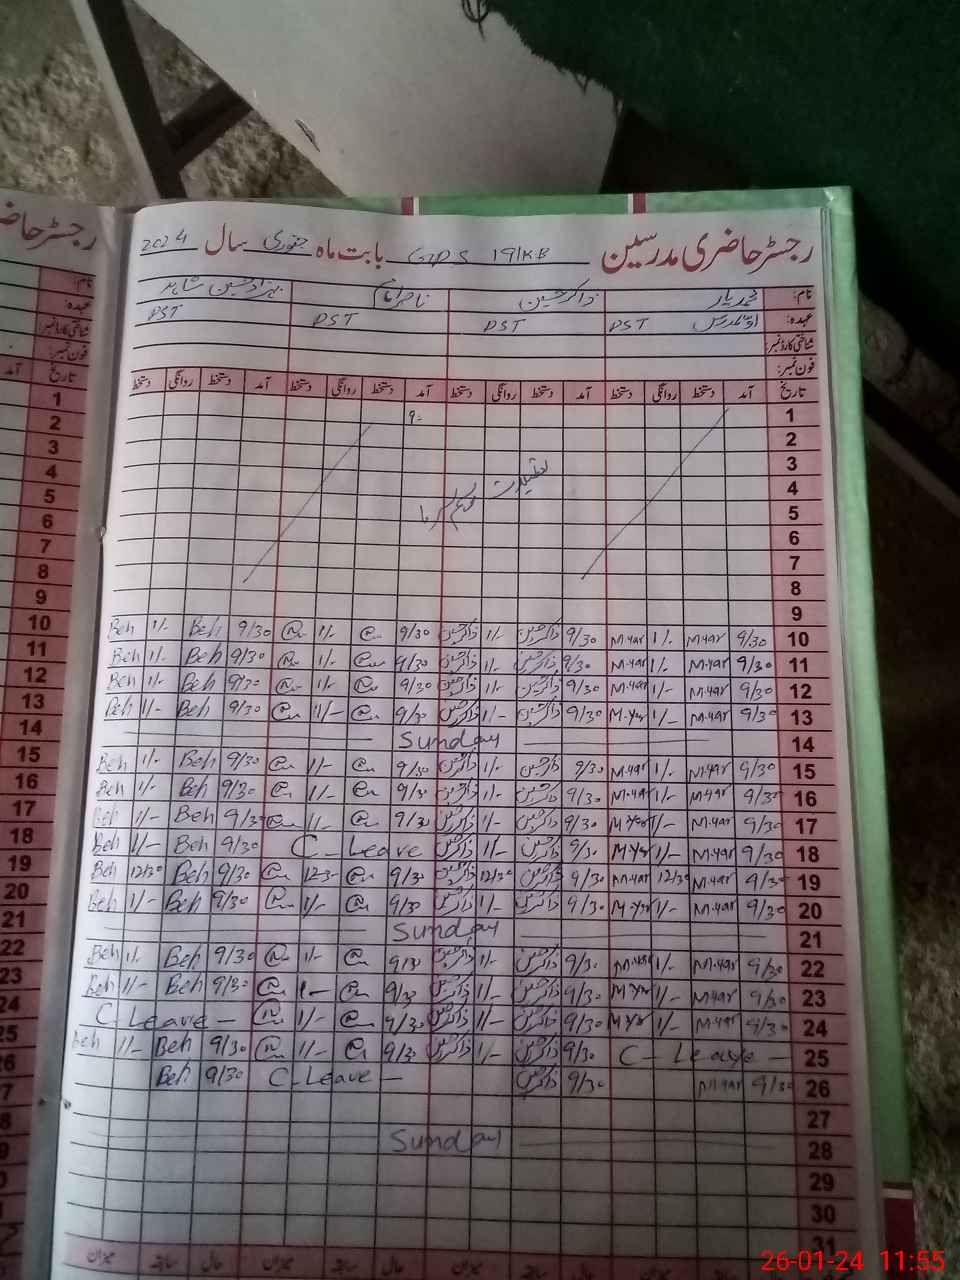 رجسٹر حاضری مدرسین GPS 19/KB بابت ماہ جنوری سال 2024
نام: محمد یار ذاکر حسین ناصر امام بہزاد حسین شاہد
عہدہ: اول مدرس PST PST PST PST
شناختی کارڈ نمبر:
فون نمبر:
تاریخ آمد دستخط روانگی دستخط آمد دستخط روانگی دستخط آمد دستخط روانگی دستخط آمد دستخط روانگی دستخط
1 9:
2
3
4 تعطیلات موسم سرما
5
6
7
8
9
10 9/30 M.yar 1/- M.yar 9/30 ذاکر حسین 1/- ذاکر حسین 9/30 1/- 9/30 Beh 1/- Beh
11 9/30 M.yar 1/- M.yar 9/30 ذاکر حسین 1/- ذاکر حسین 9/30 1/- 9/30 Beh 1/- Beh
12 9/30 M.yar 1/- M.yar 9/30 ذاکر حسین 1/- ذاکر حسین 9/30 1/- 9/30 Beh 1/- Beh
13 9/30 M.yar 1/- M.yar 9/30 ذاکر حسین 1/- ذاکر حسین 9/30 1/- 9/30 Beh 1/- Beh
14 Sunday
15 9/30 M.yar 1/- M.yar 9/30 ذاکر حسین 1/- ذاکر حسین 9/30 1/- 9/30 Beh 1/- Beh
16 9/30 M.yar 1/- M.yar 9/30 ذاکر حسین 1/- ذاکر حسین 9/30 1/- 9/30 Beh 1/- Beh
17 9/30 M.yar 1/- M.yar 9/30 ذاکر حسین 1/- ذاکر حسین 9/30 1/- 9/30 Beh 1/- Beh
18 9/30 M.yar 1/- M.yar 9/30 ذاکر حسین 1/- ذاکر حسین C-Leave 9/30 Beh 1/- Beh
19 9/30 M.yar 12/30 M.yar 9/30 ذاکر حسین 12/30 ذاکر حسین 9/30 123- 9/30 Beh 12/30 Beh
20 9/30 M.yar 1/- M.yar 9/30 ذاکر حسین 1/- ذاکر حسین 9/30 1/- 9/30 Beh 1/- Beh
21 Sunday
22 9/30 M.yar 1/- M.yar 9/30 ذاکر حسین 1/- ذاکر حسین 9/30 1/- 9/30 Beh 1/- Beh
23 9/30 M.yar 1/- M.yar 9/30 ذاکر حسین 1/- ذاکر حسین 9/30 1- 9/30 Beh 1/- Beh
24 9/30 M.yar 1/- M.yar 9/30 ذاکر حسین 1/- ذاکر حسین 9/30 1/- C-Leave-
25 C-Leave- 9/30 ذاکر حسین 1/- ذاکر حسین 9/30 1/- 9/30 Beh 1/- Beh
26 9/30 M.yar 9/30 ذاکر حسین C-Leave- 9/30 Beh
27
28 Sunday
29
30
31
حال سابقہ میزان حال سابقہ میزان
26-01-24 11:55